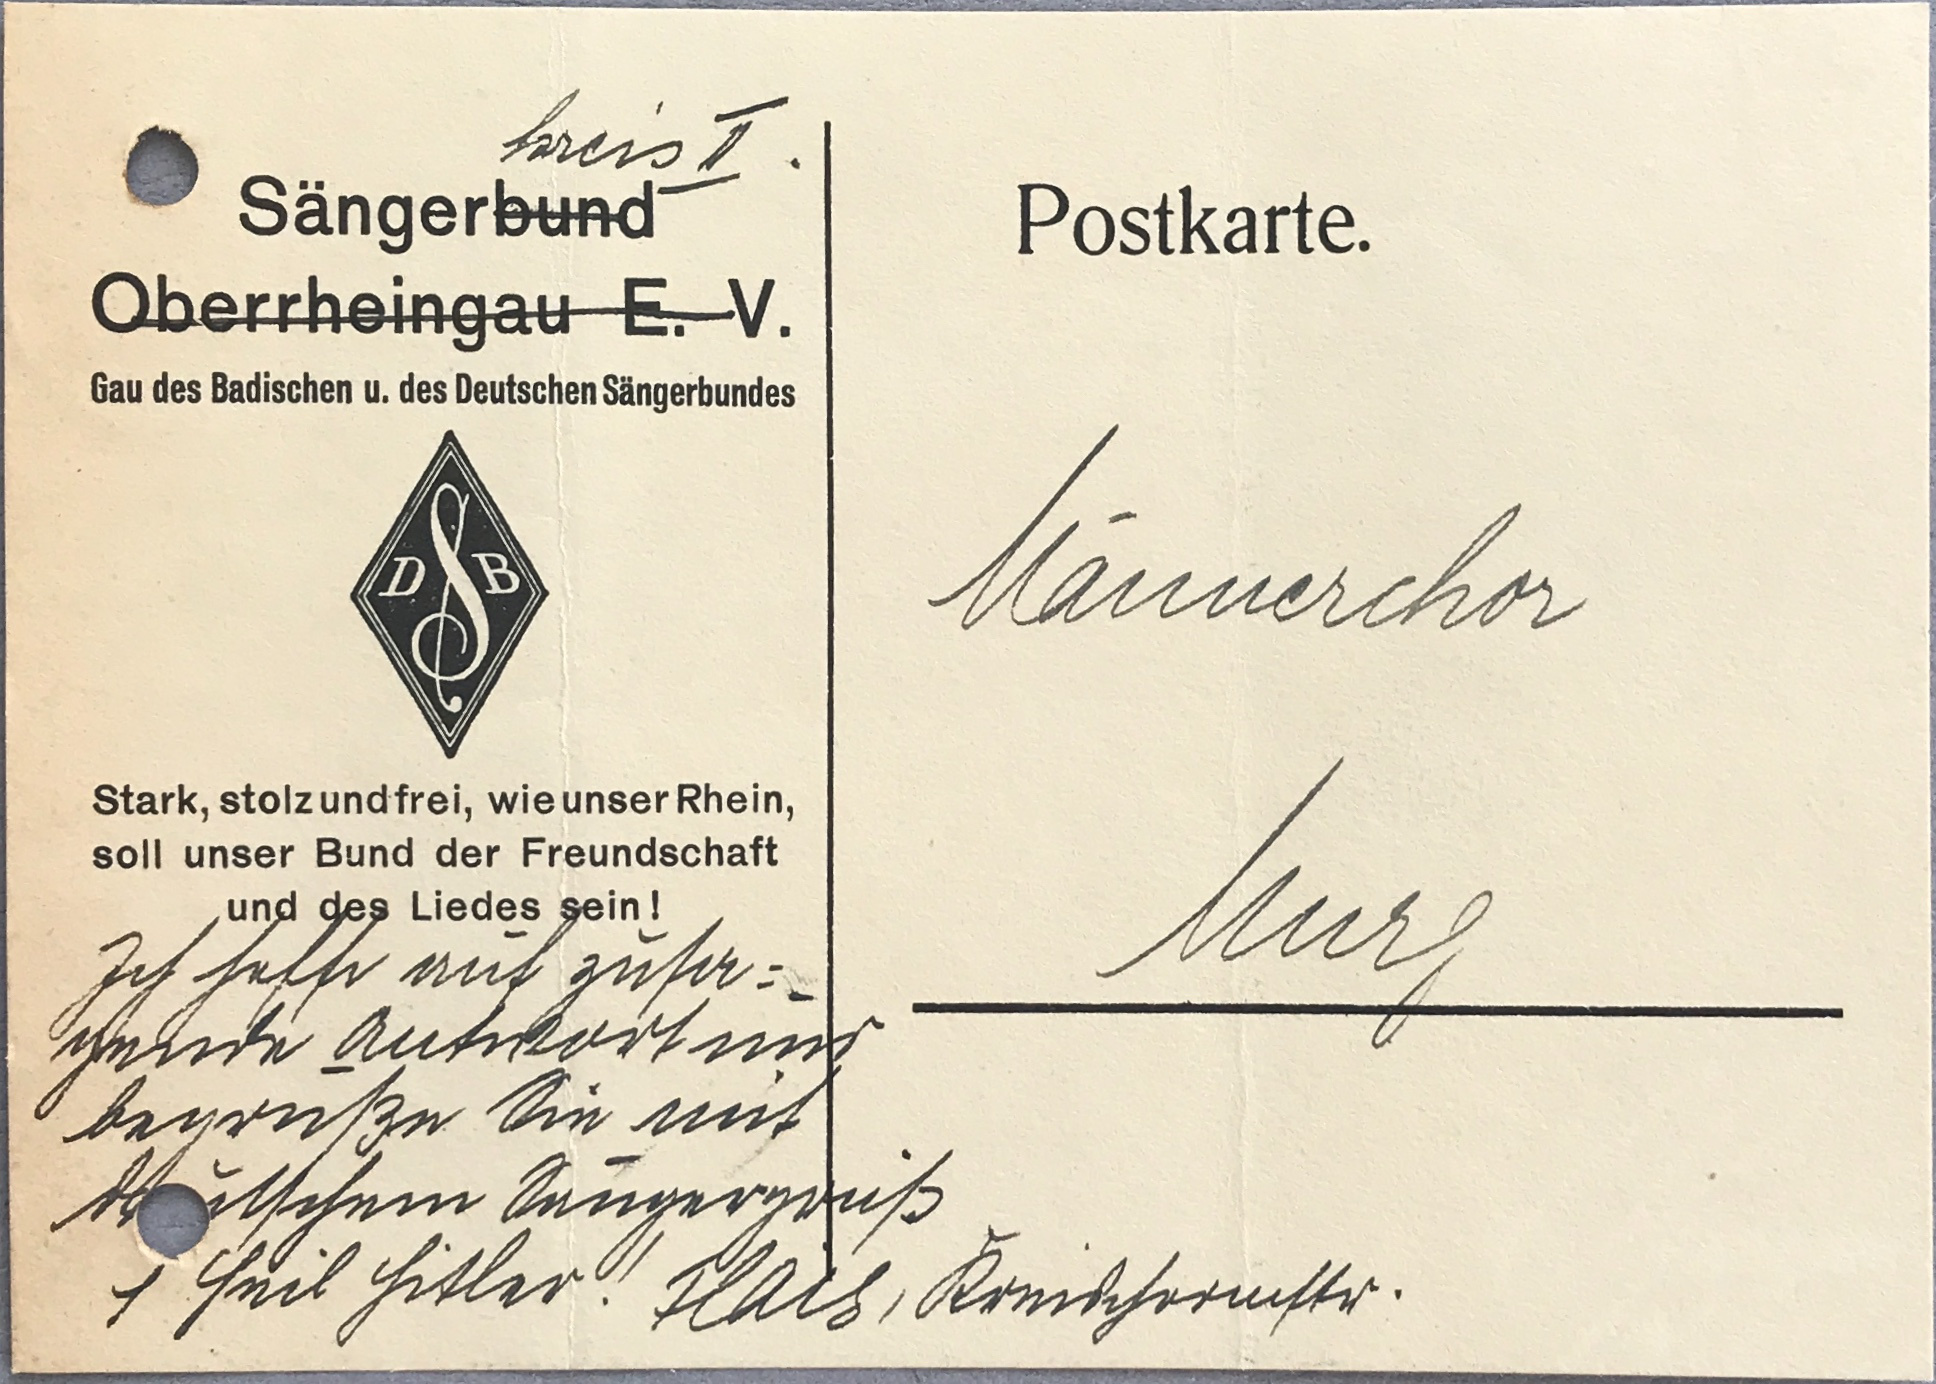 kreis II.
Sängerbund
Oberrheingau E. V.
Gau des Badischen u. des Deutschen Sängerbundes
D S B
Stark, stolz und frei, wie unser Rhein,
soll unser Bund der Freundschaft
und des Liedes sein!
Ich hoffe auf zusa=
gende Antwort und
begrüße Sie mit
deutschem Sängergruß
+ Heil Hitler! Kreischormstr.
Postkarte.
Männerchor
Murg